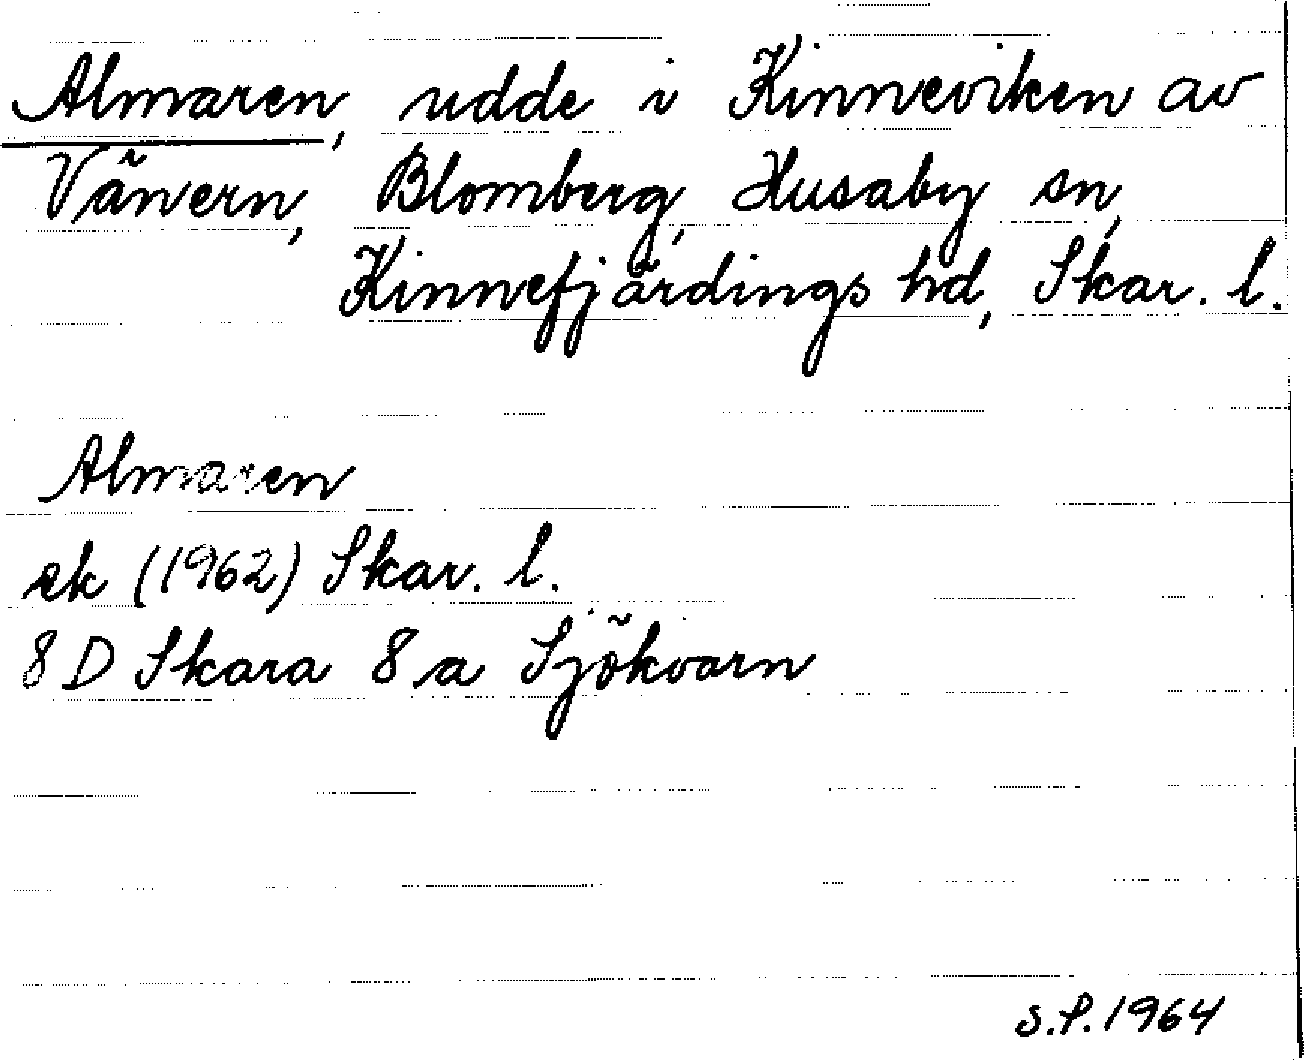 Almaren, udde i Kinneviken av
Vänern, Blomberg, Husaby sn,
Kinnefjärdings hd, Skar. l.
Almaren
ek (1962) Skar. l.
8 D Skara 8 a Sjökvarn
S.P. 1964